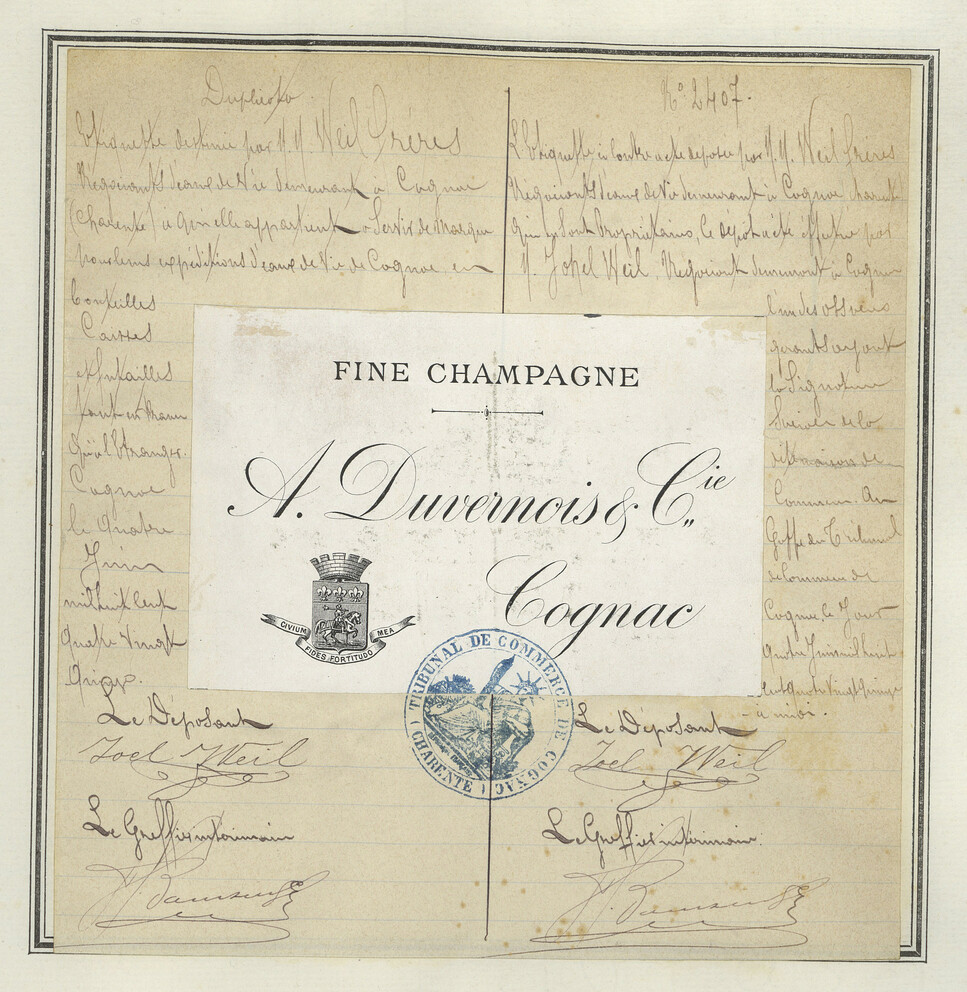 Duplicata
Etiquette destinée par M.M. Weil Frères
Négociants d'eaux de Vie demeurant à Cognac
(Charente) à qui elle appartient à Servir de Marque
pour leurs expéditions d'eaux de Vie de Cognac en
bouteilles
Caisses
et futailles
tant en France
qu'à l'Etranger.
Cognac
le Quatre
Juin
mil huit cent
quatre vingt
Onze.
Le Déposant
Joel Weil
Le Greffier intérimaire
No 2407.
L'Etiquette ci contre a été déposée par M.M. Weil frères
Négociants d'eaux de Vie demeurant à Cognac Charente
qui en sont Propriétaires, le dépôt a été effectué par
M. Joel Weil, Négociant demeurant à Cognac
l'un des associés
gérants ayant
la Signature
Sociale de la
dite maison de
Commerce. Au
Greffe du Tribunal
de Commerce de
Cognac, le Jour
quatre Juin mil huit
cent quatre vingt onze
à midi.
Le Déposant
Joel Weil
Le Greffier intérimaire.
FINE CHAMPAGNE
A. Duvernois & Cie
Cognac
CIVIUM FIDES FORTITUDO MEA
TRIBUNAL DE COMMERCE DE COGNAC (CHARENTE)